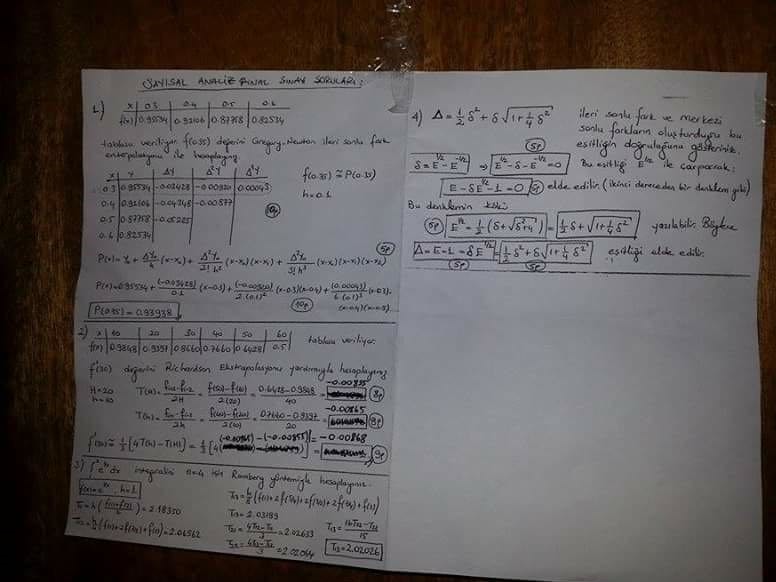 SAYISAL ANALİZ FİNAL SINAV SORULARI:
1) x 0.3 0.4 0.5 0.6
f(x) 0.95534 0.92106 0.87758 0.82534
tablosu veriliyor f(0.35) değerini Gregory-Newton ileri sonlu fark
enterpolasyonu ile hesaplayınız.
x Y ΔY Δ²Y Δ³Y
0.3 0.95534 -0.03428 -0.00920 0.00043
0.4 0.92106 -0.04348 -0.00877
0.5 0.87758 -0.05225
0.6 0.82534
10p
f(0.35) ≅ P(0.35)
h=0.1
P(x)=Y₀+ ΔY₀/h (x-x₀) + Δ²Y₀/2!h² (x-x₀)(x-x₁) + Δ³Y₀/3!h³ (x-x₀)(x-x₁)(x-x₂)
5p
P(x)=0.95534+ (-0.03428)/0.1 (x-0.3)+ (-0.00920)/2.(0.1)² (x-0.3)(x-0.4)+ (0.00043)/6(0.1)³ (x-0.3).
(x-0.4)(x-0.5)
10p
P(0.35)=0.93938
2) x 10 20 30 40 50 60
f(x) 0.9848 0.9397 0.8660 0.7660 0.6428 0.5
tablosu veriliyor.
f'(30) değerini Richardson Ekstrapolasyonu yardımıyla hesaplayınız
H=20
h=10
T(H)= = f(50)-f(10)/2(20) = 0.6428-0.9848/40 = -0.00855 8p
T(h)= = f(40)-f(20)/2(10) = 0.7660-0.9397/20 = -0.00865 8p
f'(30)≅ 1/3 [4T(h)-T(H)] = 1/3 [4(-0.00865)-(-0.00855)] = -0.00868 9p
3) dx integralini n=4 için Romberg yöntemiyle hesaplayınız.
h=1
T₁₁=h(f(1)+f(2)/2)=2.18350
=2.06562
T₁₃= h/8 (f(1)+2f(5/4)+2f(3/2)+2f(7/4)+f(2))
T₁₃=2.03199
T₂₂= =2.02633
=2.02064
T₁₃=
T₁₃=2.02026
4) Δ= 1/2 δ² + δ√(1+1/4 δ²) ileri sonlu fark ve merkezi
sonlu farkların oluşturduğu bu
eşitliğin doğruluğunu gösteriniz.
5p
δ=E^1/2-E^-1/2 ⇒ E^1/2-δ-E^-1/2=0 Bu eşitliği E^1/2 ile çarparak:
E-δE^1/2-1=0 5p elde edilir. (ikinci dereceden bir denklem gibi)
Bu denklemin kökü
5p E^1/2= 1/2 (δ+√(δ²+4)) = 1/2 δ+√(1+1/4 δ²) yazılabilir. Böylece
Δ=E-1=δE^1/2 = 1/2 δ²+δ√(1+1/4 δ²) eşitliği elde edilir.
5p 5p